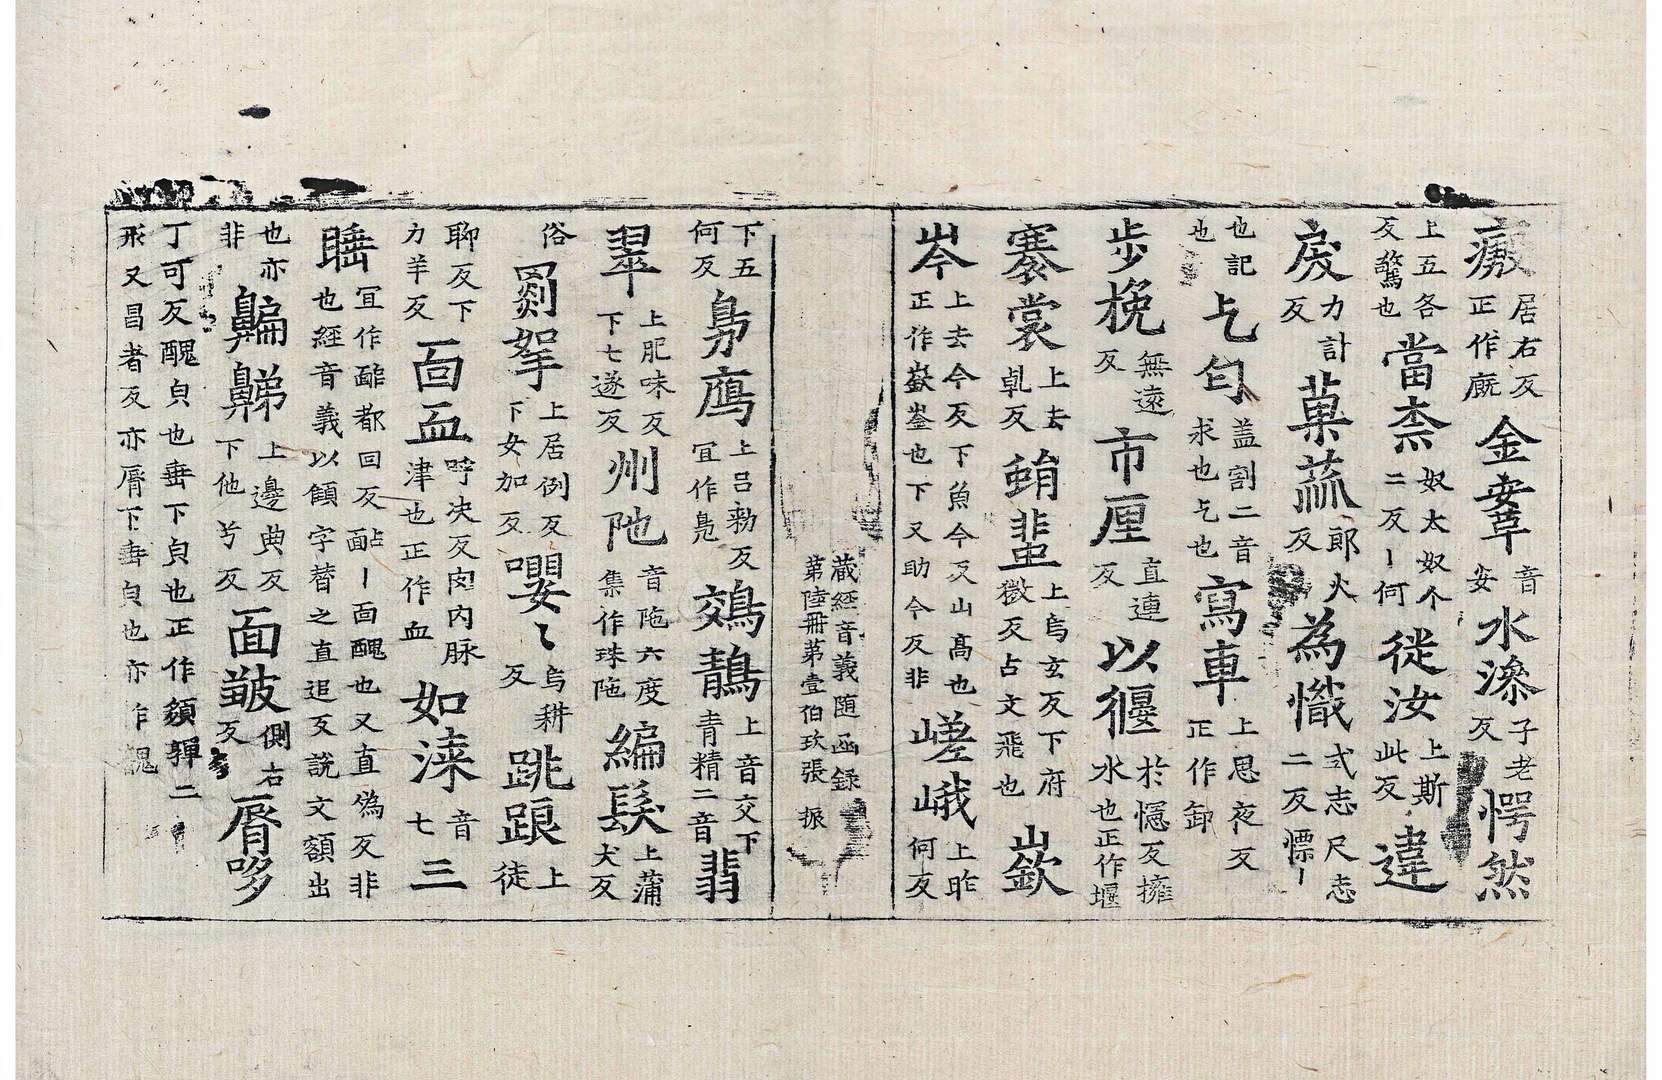 癈居右反正作廐金鞌音安水㵕子老反愕然
上五各反驚也當柰奴太奴个二反丨何徙汝上斯此反違
戾力計反菓蓏郎火反為幟式志尺志二反幖丨
也記也乞匂盖割二音求也乞也寫車上思夜反正作卸
步挽無遠反市㕓直連反以堰於憶反擁水也正作堰
褰裳上去乹反蜎蜚上烏玄反下府微反古文飛也山嶔
岑上去今反下魚今反山髙也正作嶔崟也下又助今反非嵯峨上昨何反
蔵經音義随函録
第陸冊第壹伯玖張 振
下五何反鳧鴈上呂勑反冝作鳬鵁鶄上音交下青精二音翡
翠上肥味反下七遂反州阤音陁六度集作殊陁編髮上蒲犬反
俗罽挐上居例反下女加反嚶〻烏耕反跳踉上徒
聊反下力羊反面血呼决反肉内脉津也正作血如湊音七三
睡冝作都回反丨面醜也又直偽反非也經音義以字替之直追反說文額出
也亦非上邊典反下他兮反面皺側右反脣哆
丁可反醜皃也垂下皃也正作嚲二形又昌者反亦脣下垂皃也亦作